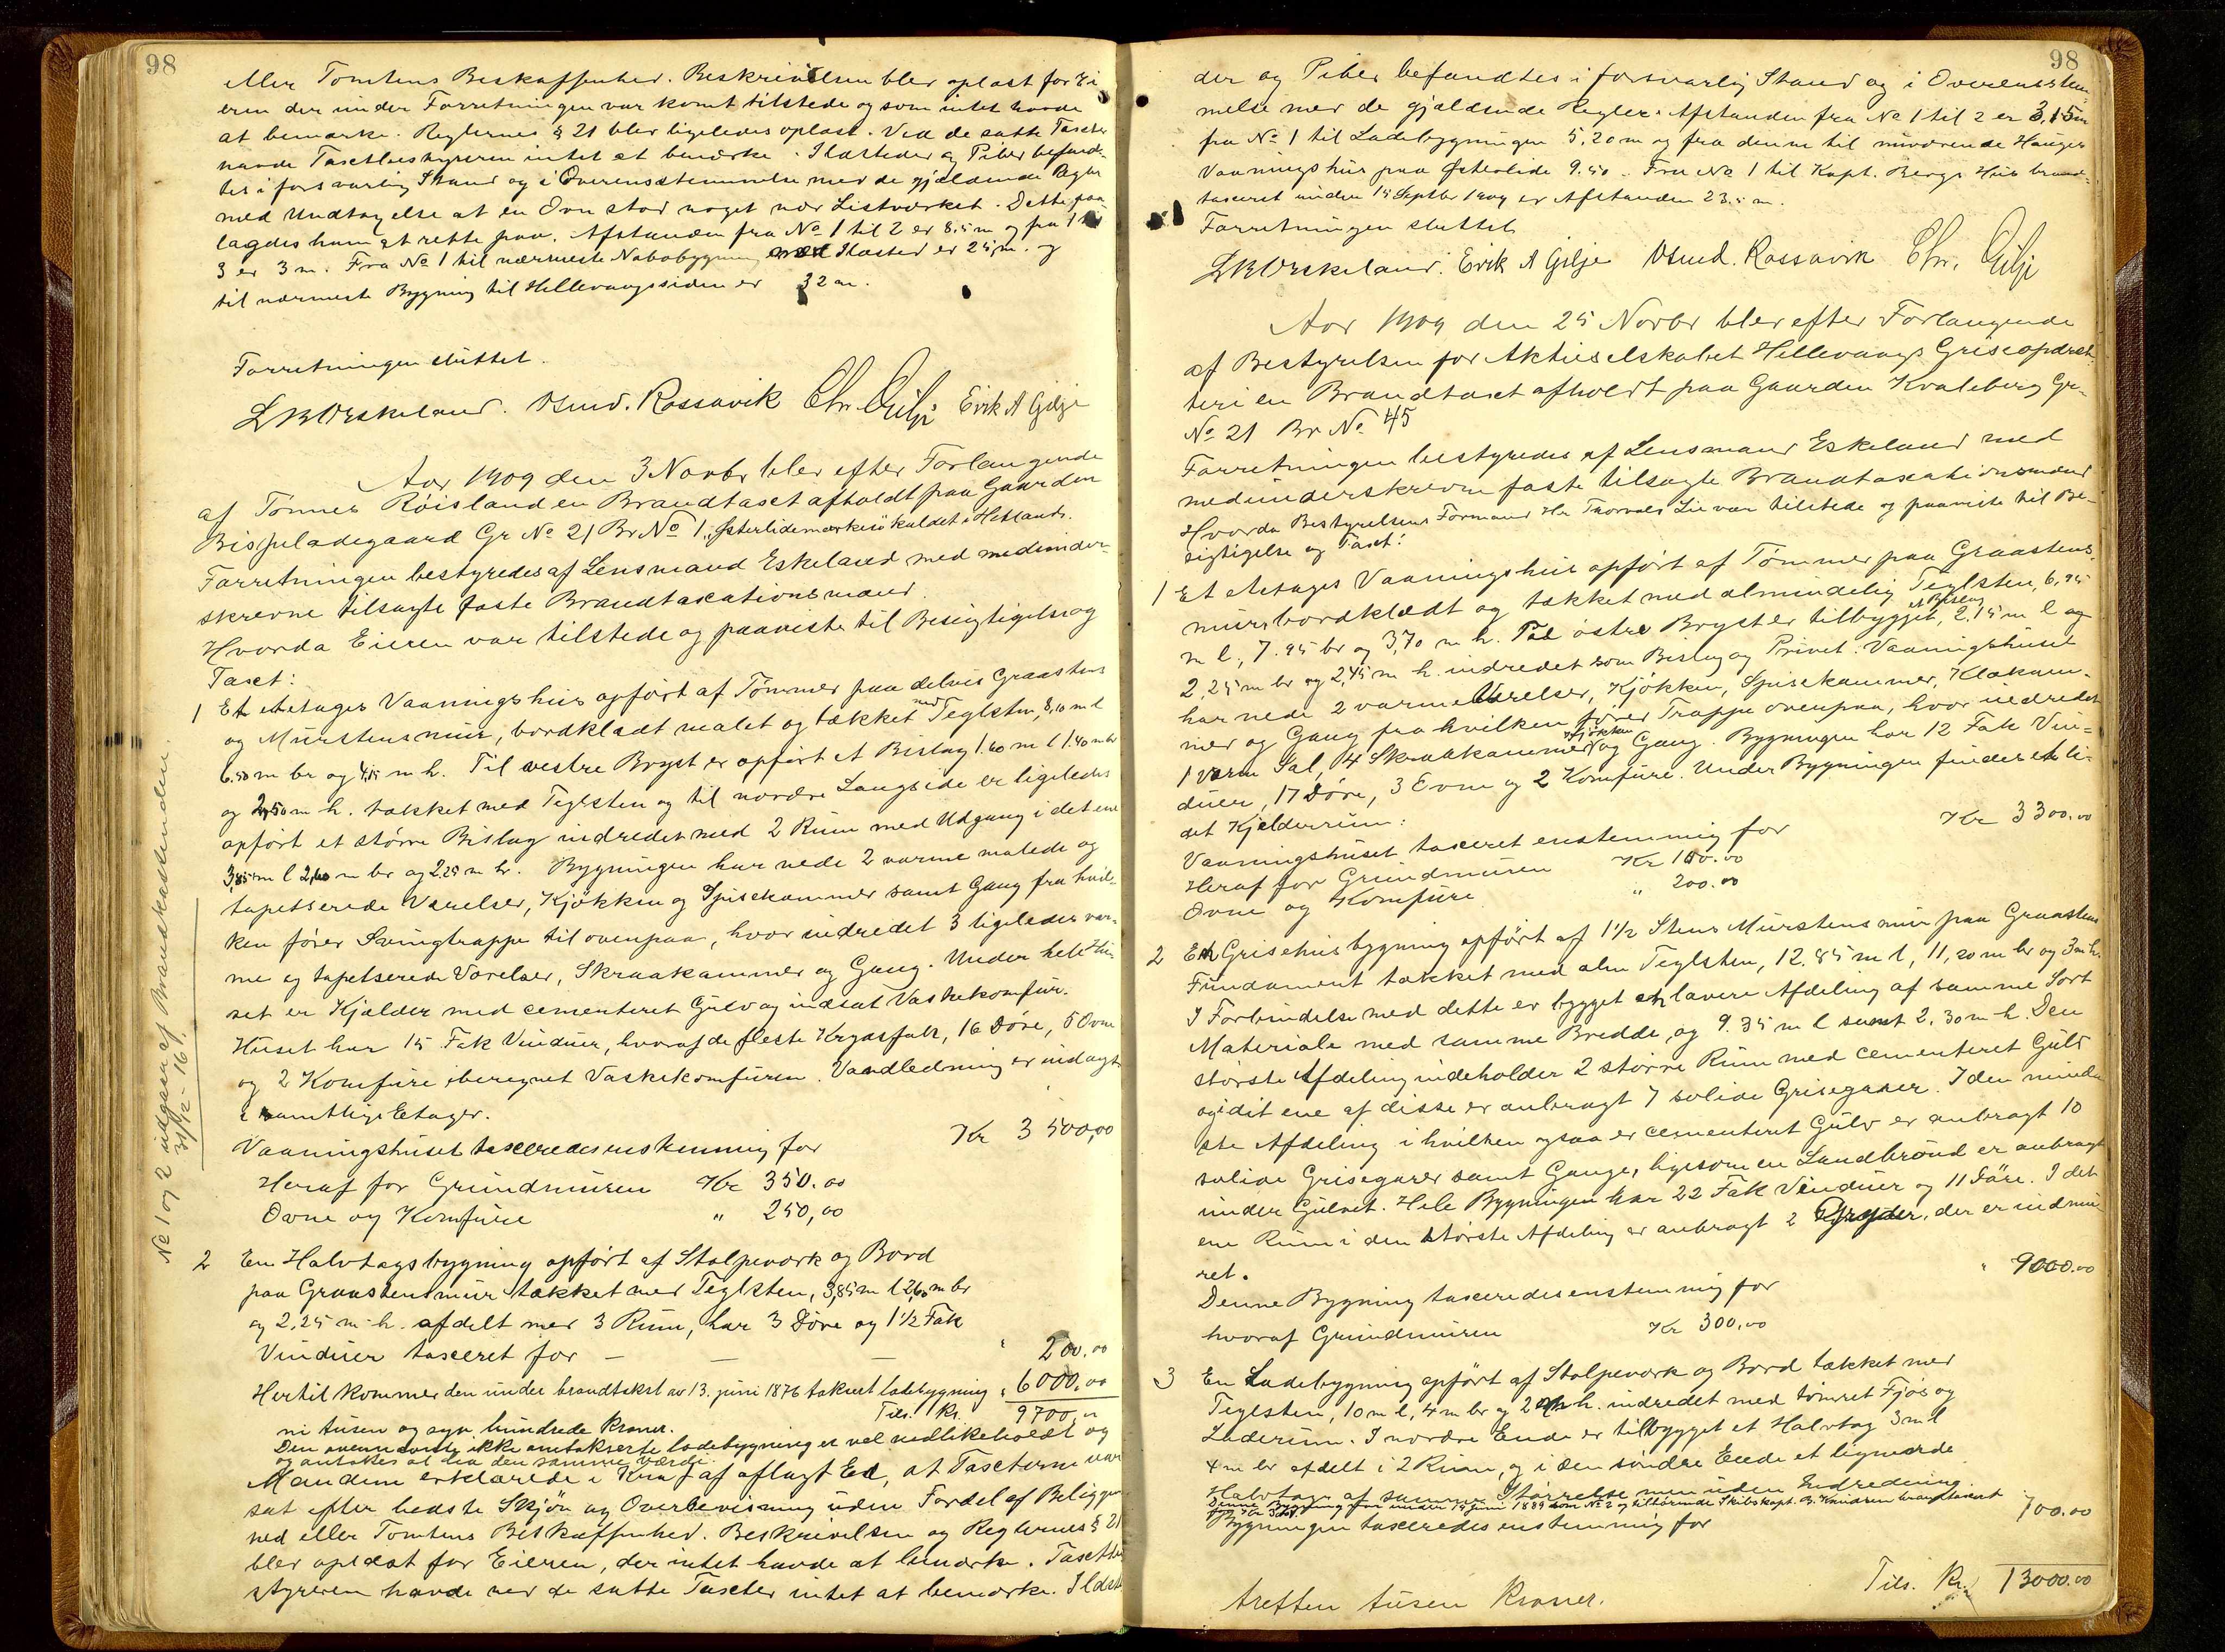 98
eller Tomtens Beskaffenhed. Beskrivelsen blev oplæst for Ei
eren der under Forretningen var komt tilstede og som intet havde
at bemærke. Reglernes § 21 blev ligeledes oplæst. Ved de satte Taxter
havde Taxtbestyreren intet at bemærke. Ildsteder og Piber befand-
tes i forsvarlig Stand og i Overensstemmelse med de gjældende Regler
med Undtagelse at en Ovn stod noget nær Listværket. Dette paa
lagdes ham at rette paa. Afstanden fra No 1 til 2 er 8.5 m og fra 1 til
3 er 3 m. Fra No 1 til nærmeste Nabobygning med Ildsted er 25 m. og
til nærmeste Bygning til Hillevaagssiden er 32 m.
Forretningen sluttet.
LBOEskeland. Osmd. Rossavik Chr. Gilje Erik A Gilje
Aar 1909 den 3 Novbr blev efter Forlangende
af Tønnes Røisland en Brandtaxt afholdt paa Gaarden
Bispeladegaard Gr No 21 Br No 1, Østerlidemarken kaldet i Hetland.
Forretningen bestyredes af Lensmand Eskeland med medunder-
skrevne tilsagte faste Brandtaxationsmænd.
Hvorda Eieren var tilstede og paaviste til Besigtigelse og
Taxt:
1 Et etetages Vaaningshus opført af Tømmer paa delvis Graastens
og Murstensmur, bordklædt malet og tækket med Teglsten, 8,10 m l
6.50 m br og 4,15 m h. Til vestre Bryst er opført et Bislag 1.60 m l 1.40 m br
og 2,50 m h. tækket med Teglsten og til nordre Langside er ligeledes
opført et større Bislag indredet med 2 Rum med Udgang i det ene
3,85 m l 2,60 m br og 2.25 m h. Bygningen har nede 2 varme malede og
tapetserede Værelser, Kjøkken og Spisekammer samt Gang fra hvil-
ken fører Svingtrappe til ovenpaa, hvor indredet 3 ligeledes var-
me og tapetserede Værelser, Skraakammer og Gang. Under hele Hu-
set er Kjælder med cementeret Gulv og indsat Vaskekomfur.
Huset har 15 Fak Vinduer, hvoraf de fleste Krydsfak, 16 Døre, 5 Ovne
og 2 Komfure iberegnet Vaskekomfuren. Vandledning er indlagt
i samtlige Etager.
Vaaningshuset taxeredes enstemmig for Kr 3500,00
Heraf for Grundmuren Kr 350.00
Ovne og Komfure " 250,00
2 En Halvtagsbygning opført af Stolpeværk og Bord
paa Graastensmur tækket med Teglsten, 3,85 m l 2,60 m br
og 2.25 m h. afdelt med 3 Rum, har 3 Døre og 1½ Fak
Vinduer taxeret for — — — " 200.00
Hertil kommer den under brandtakst av 13. juni 1876 takseret ladebygning " 6000.00
Tils. Kr. 9700,00
ni tusen og syv hundrede kroner.
Den ovennævnte ikke omtakserte ladebygning er vel vedlikeholdt og
og antakes at ha den samme værdi.
Mændene erklærede i Kraf af aflagt Ed, at Taxterne var
sat efter bedste Skjøn og Overbevisning uden Fordel af Beliggen
hed eller Tomtens Beskaffenhed. Beskrivelsen og Reglernes § 21
blev oplæst for Eieren, der intet havde at bemærke. Taxtbe
styreren havde ved de satte Taxter intet at bemærke. Ildste
No 1 og 2 utgaar af Brandkassen
31/12-16.
98
der og Piber befandtes i forsvarlig Stand og i Overensstem-
melse med de gjældende Regler. Afstanden fra No 1 til 2 er 3,15 m
fra No 1 til Ladebygningen 5.20 m og fra denne til nuværende Hauges
Vaaningshus paa Østerlide 9.50. Fra No 1 til Kapt. Bergs Hus brand-
taxeret under 15 Septbr 1909 er Afstanden 23.5 m.
Forretningen sluttet
LBOEskeland. Erik A Gilje Osmd. Rossavik Chr. Gilje
Aar 1909 den 25 Novbr blev efter Forlangende
af Bestyrelsen for Aktieselskabet Hillevaags Griseopdræt
teri en Brandtaxt afholdt paa Gaarden Kvaleberg Gr-
No 21 Br No 45
Forretningen bestyredes af Lensmand Eskeland med
medunderskrevne faste tilsagte Brandtaxationsmænd
Hvorda Bestyrelsens Formand Hr Thorvald Lie var tilstede og paaviste til Be-
sigtigelse og Taxt:
1 Et etetages Vaaningshus opført af Tømmer paa Graastens
mur bordklædt og tækket med almindelig Teglsten, 6,95
m l, 7.95 br og 3,70 m h. Paa østre Bryst er tilbygget et Bislag, 2.15 m l og
2.25 m br og 2,45 m h. indredet som Bislag og Privet. Vaaningshuset
har nede 2 varme Værelser, Kjøkken, Spisekammer, Klækam-
mer og Gang fra hvilken fører Trappe ovenpaa, hvor indredet
1 varm Sal, 4 Skraakammer Kjøkken og Gang. Bygningen har 12 Fak Vin-
duer, 17 Døre, 3 Ovne og 2 Komfure. Under Bygningen findes et li-
det Kjelderrum:
Vaaningshuset taxeret enstemmig for Kr 3300,00
Heraf for Grundmuren Kr 100.00
Ovne og Komfure " 200.00
2 En Grisehusbygning opført af 1½ Stens Murstensmur paa Graastens
Fundament tækket med alm Teglsten, 12.85 m l, 11,20 m br og 3 m h.
I Forbindelse med dette er bygget en lavere Afdeling af samme Sort
Materiale med samme Bredde, og 9.35 m l samt 2,30 m h. Den
største Afdeling indeholder 2 større Rum med cementeret Gulv
og i dit ene af disse er anbragt 7 solide Grisegarer. I den mind
ste Afdeling i hvilken ogsaa er cementeret Gulv er anbragt 10
solide Grisegarer samt Gange, ligesom en Landbrønd er anbragt
under Gulvet. Hele Bygningen har 22 Fak Vinduer og 11 Døre. I det
ene Rum i den største Afdeling er anbragt 2 Gryder, der er indmu-
ret.
Denne Bygning taxeredes enstemmig for " 9000.00
hvoraf Grundmuren Kr 300,00
3 En Ladebygning opført af Stolpeværk og Bord tækket med
Teglsten, 10 m l, 4 m br og 2 m h. indredet med tømret Fjøs og
Laderum. I nordre Ende er tilbygget et Halvtag 3 m l
4 m br afdelt i 2 Rum, og i den søndre Ende et lignende
Halvtag af samme Størrelse men uden Indredning.
Denne Bygning er under 19 juni 1889 som No 2 og tilhørende Skibskapt. G. Knudsen brandtaxeret
Bygningen taxeredes enstemmig for 700.00
Tils. Kr. 13000.00
tretten tusen kroner.